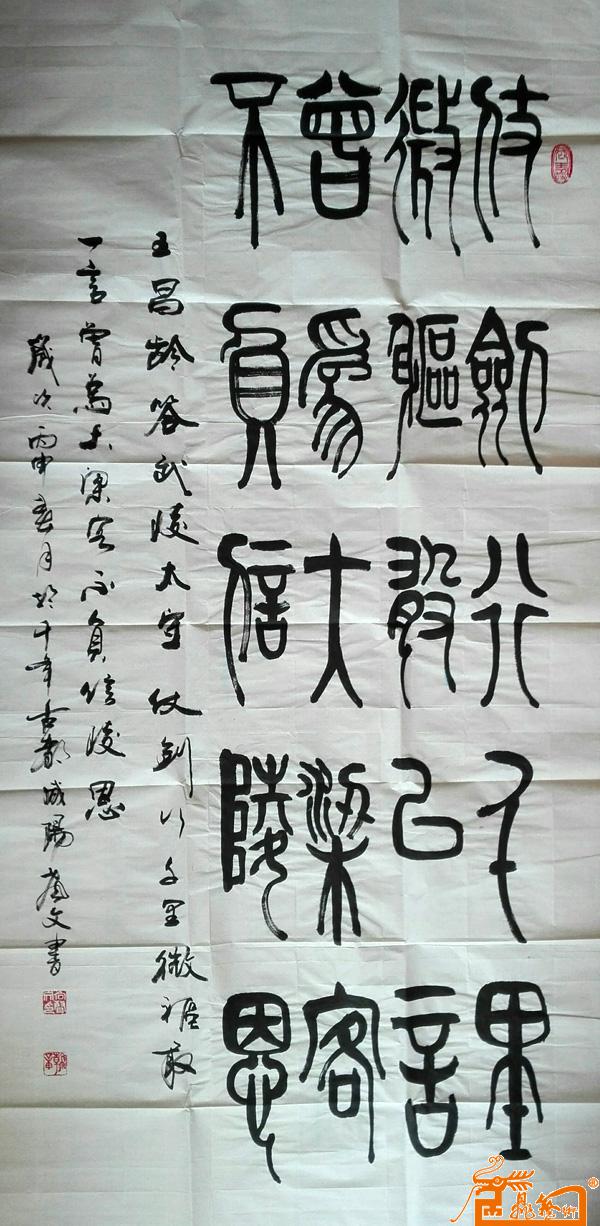 仗劍行千里
微軀敢己言
曾爲大梁客
不負信陵恩
王昌龄答武陵太守 仗劍行千里微軀敢
一言曾為大梁客不負信陵恩
歲次丙申春月於千年古都咸陽 文書